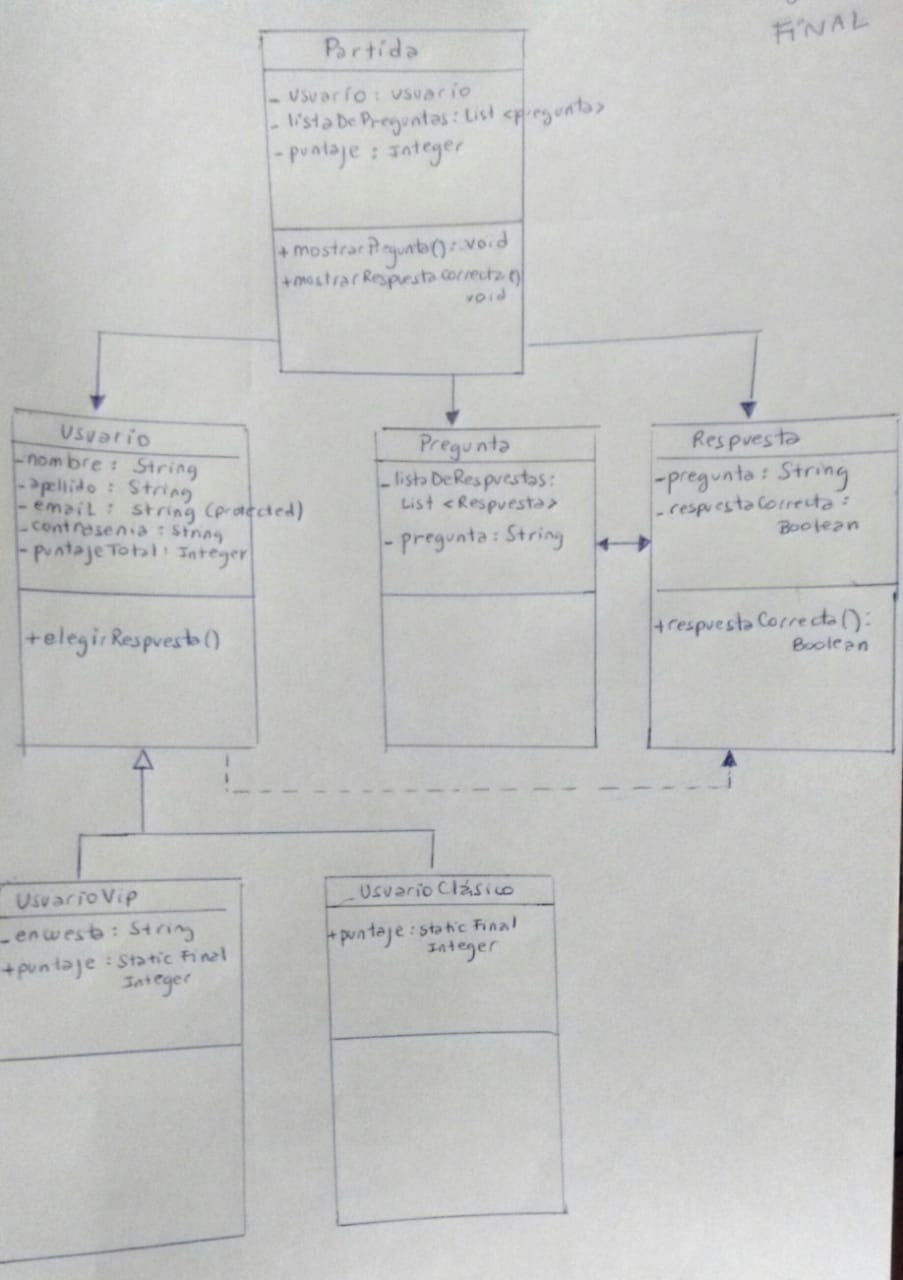 FINAL
Partida
- usuario : usuario
- listaDePreguntas : List <pregunta>
- puntaje : Integer
+ mostrarPregunta() : void
+ mostrarRespuestaCorrecta()
void
Usuario
- nombre : String
- apellido : String
- email : String (protected)
- contrasenia : String
- puntajeTotal : Integer
+ elegirRespuesta()
Pregunta
- listaDeRespuestas :
List <Respuesta>
- pregunta : String
Respuesta
- pregunta : String
- respuestaCorrecta :
Boolean
+ respuestaCorrecta() :
Boolean
UsuarioVip
- encuesta : String
+ puntaje : Static Final
Integer
UsuarioClásico
+ puntaje : static Final
Integer